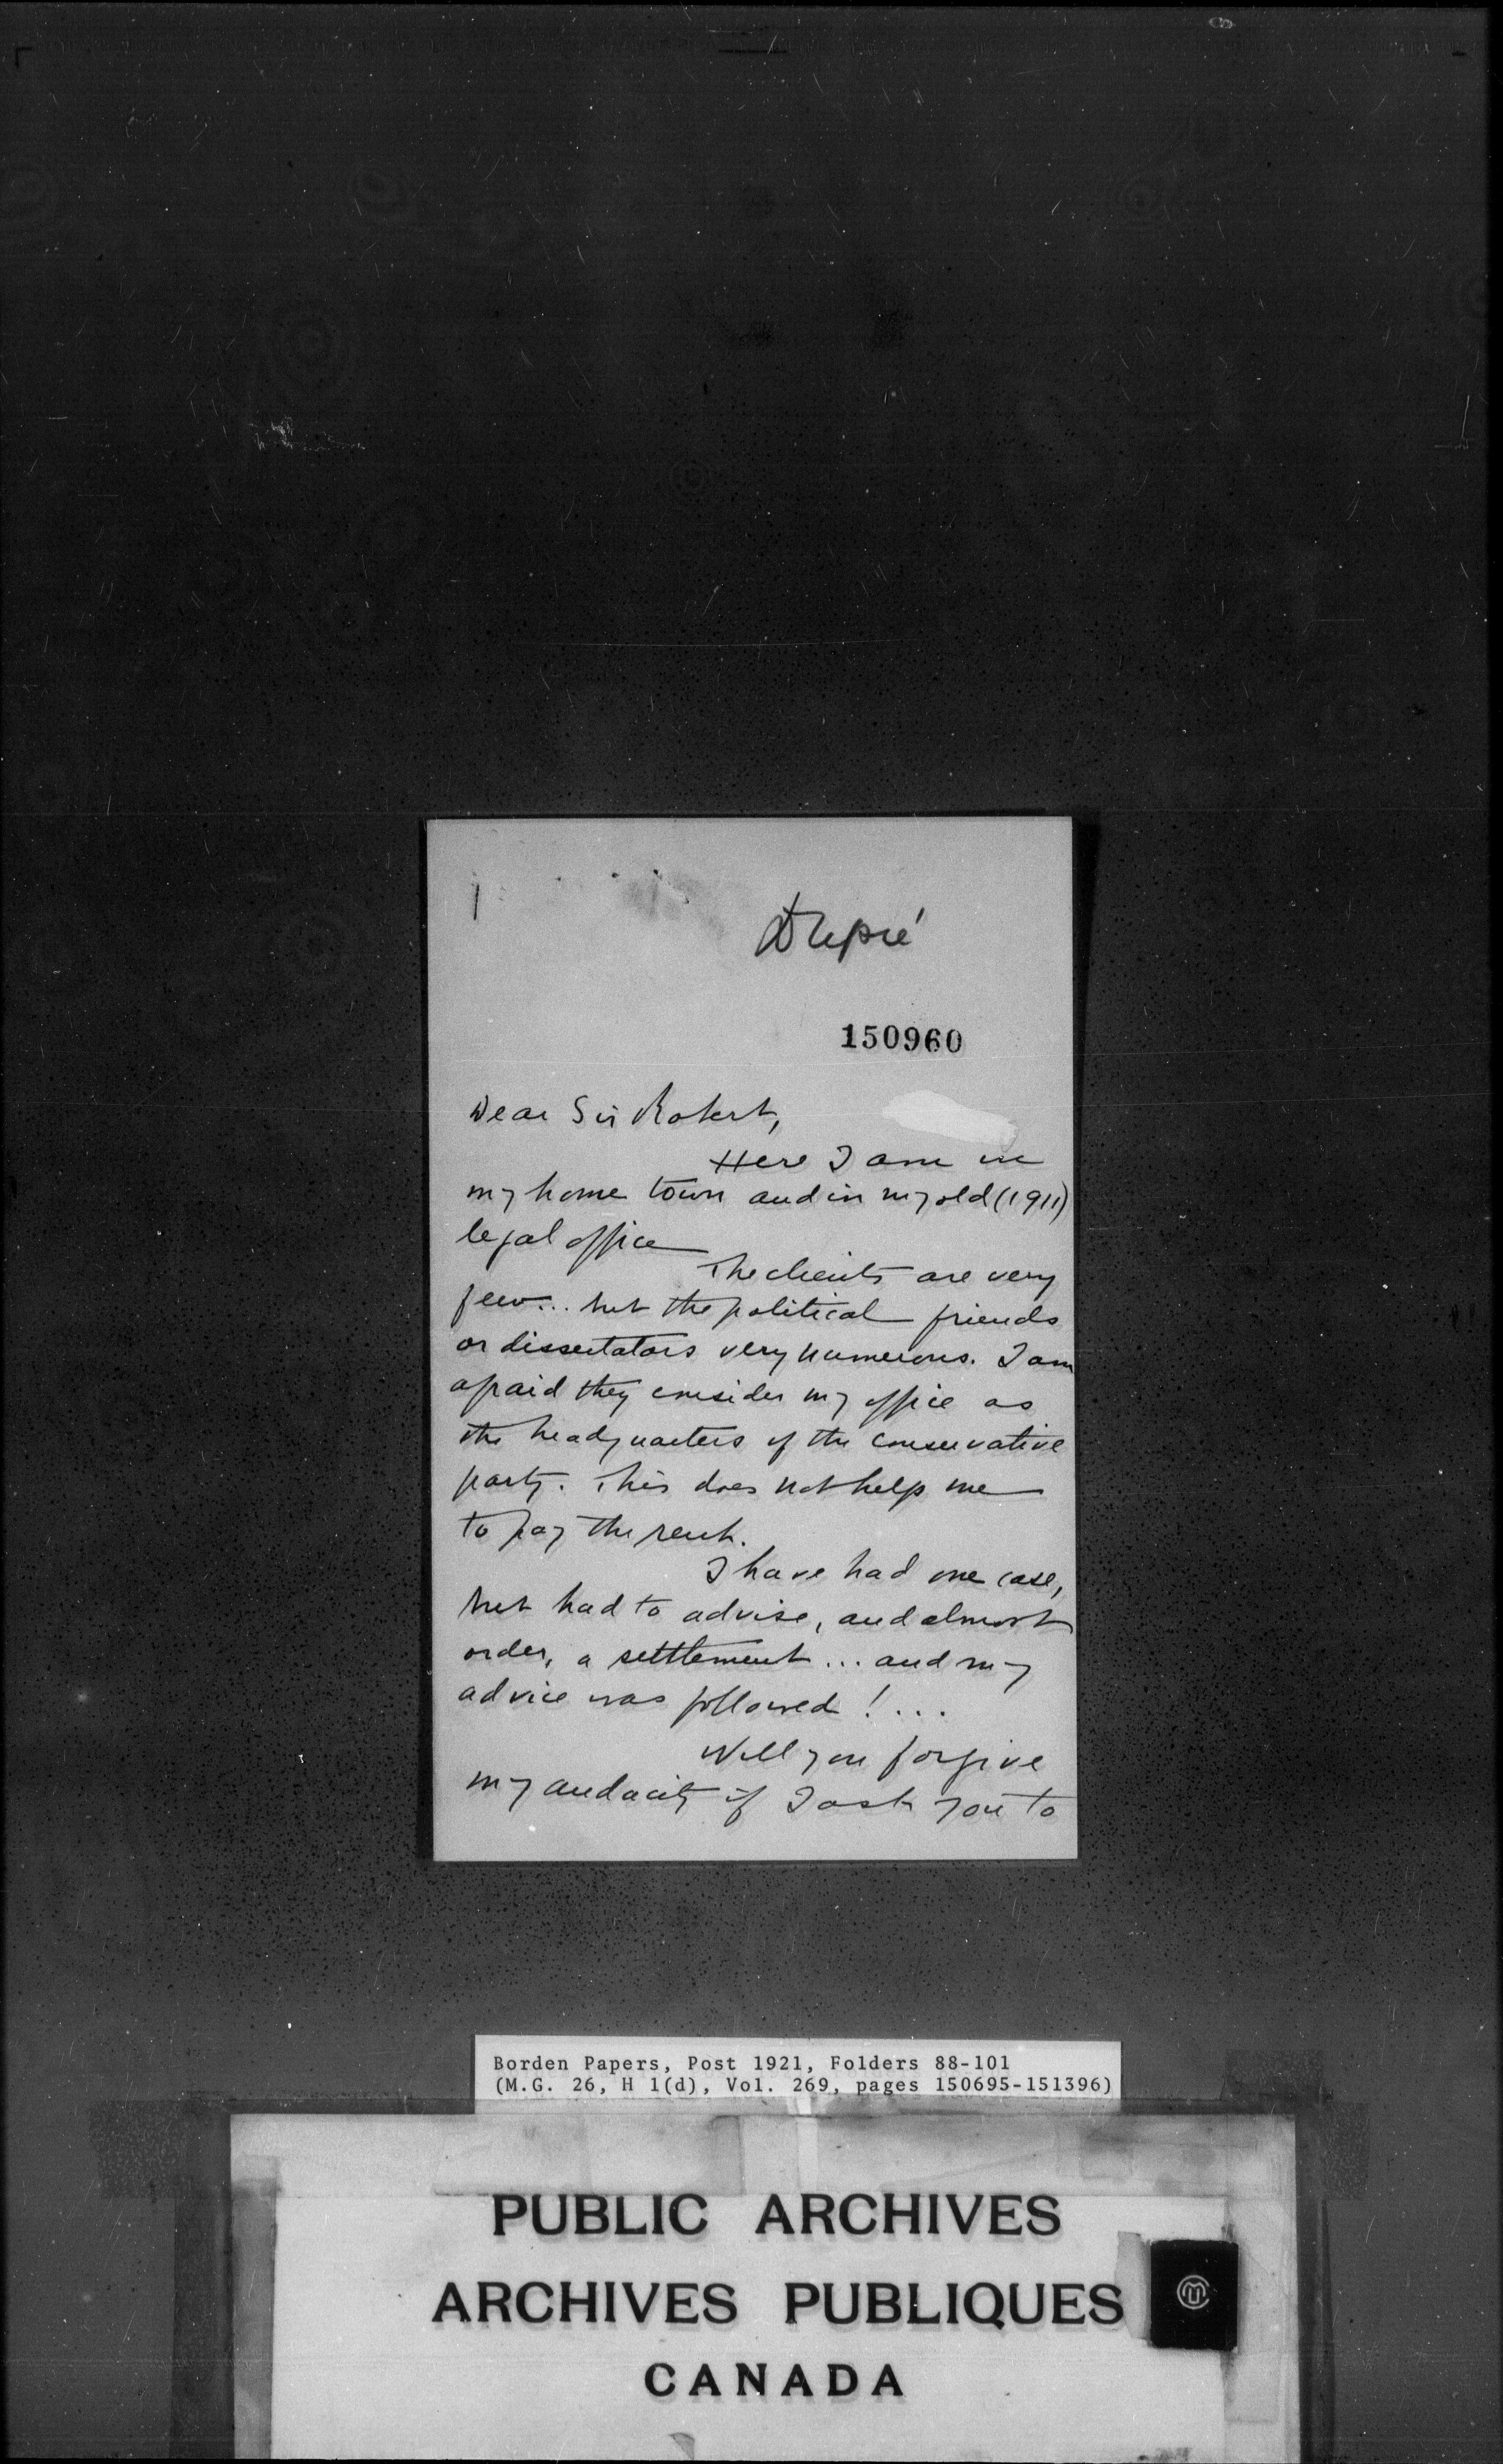 150960
Dear Sir Robert,
Here I am in
my home town and in my old (1911)
legal office
The clients are very
few... but the political friends
or dissertators very numerous. I am
afraid they consider my office as
the headquarters of the conservative
party. This does not help me
to pay the rent.
I have had one case,
but had to advise, and almost
order, a settlement ... and my
advice was followed ! ...
Will you forgive
my audacity if I ask you to
Borden Papers, Post 1921, Folders 88-101
(M.G. 26, H 1(d), Vol. 269, pages 150695-151396)
PUBLIC ARCHIVES
ARCHIVES PUBLIQUES
CANADA